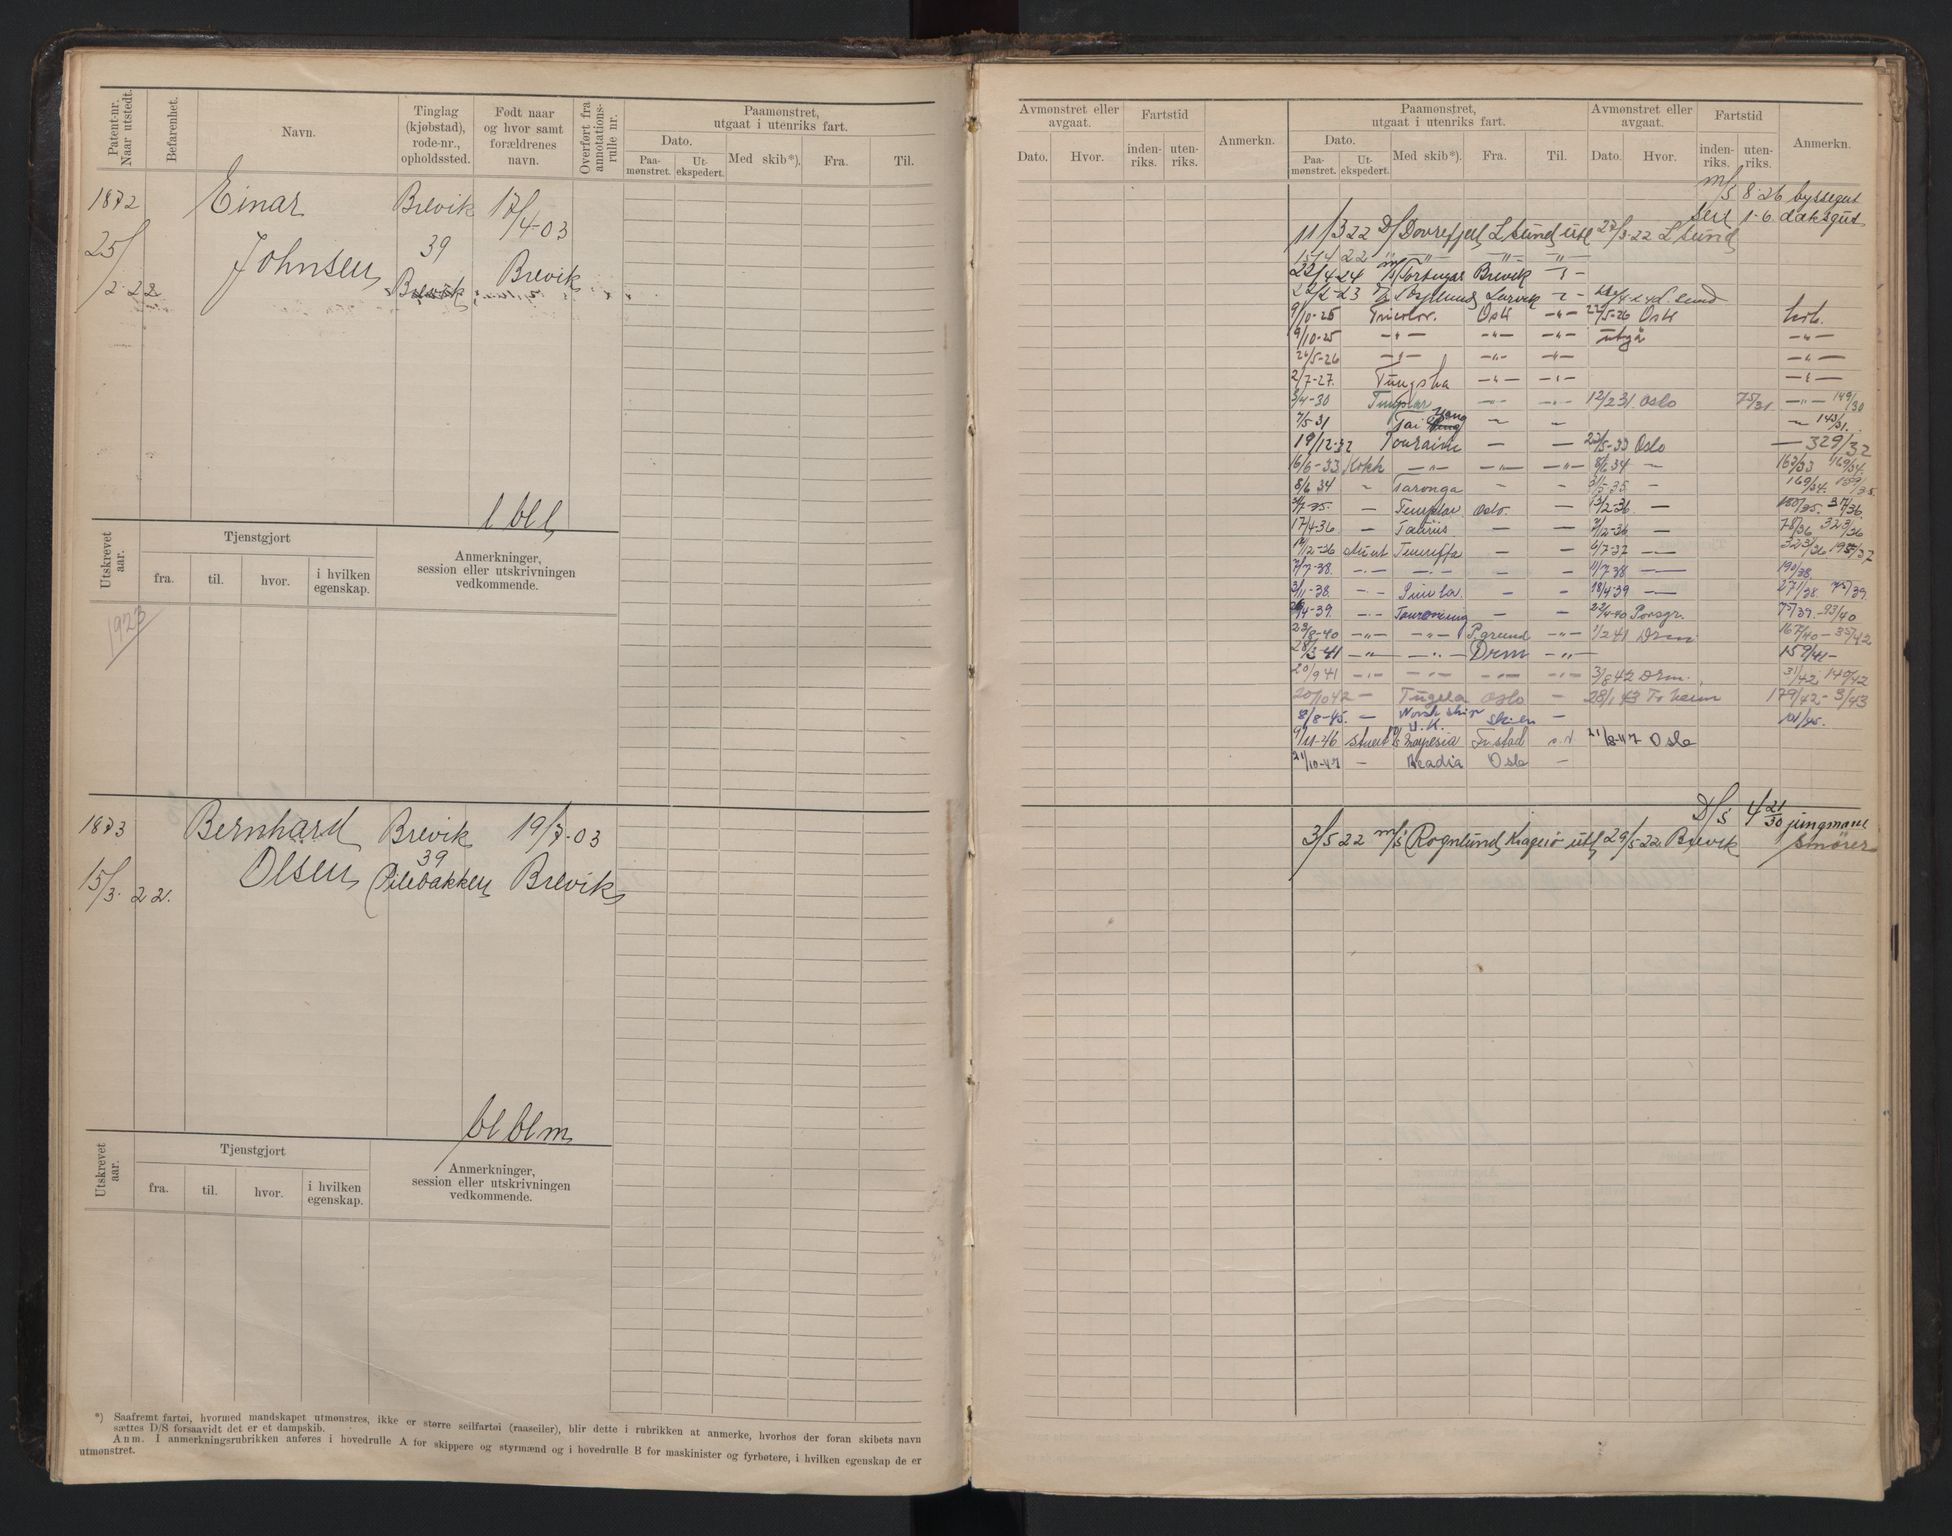 Patent-nr. Naar utstedt.
Befarenhet.
Navn.
Tinglag (kjøbstad), rode-nr., opholdssted.
Født naar og hvor samt forældrenes navn.
Overført fra annotations-rulle nr.
Paamønstret, utgaat i utenriks fart.
Dato.
Paa-mønstret.
Ut-ekspedert.
Med skib*).
Fra.
Til.
1872 Einar Brevik 17/4-03
25/2-22 Johnsen 39 Brevik
Brevik
1 bl l
Utskrevet aar.
Tjenstgjort
fra. til. hvor. i hvilken egenskap.
Anmerkninger, session eller utskrivningen vedkommende.
1923
1873 Bernhard Brevik 19/7-03
15/3-22. Olsen 39 Pilebakken Brevik
bl blm
Utskrevet aar.
Tjenstgjort
fra. til. hvor. i hvilken egenskap.
Anmerkninger, session eller utskrivningen vedkommende.
*) Saafremt fartøi, hvormed mandskapet utmønstres, ikke er større seilfartøi (raaseiler), blir dette i rubrikken at anmerke, hvorhos der foran skibets navn
sættes D/S forsaavidt det er et dampskib.
Anm. I anmerkningsrubrikken anføres i hovedrulle A for skippere og styrmænd og i hovedrulle B for maskinister og fyrbøtere, i hvilken egenskap de er
utmønstret.
Avmønstret eller avgaat.
Dato. Hvor.
Fartstid
inden-riks. uten-riks.
Anmerkn.
Paamønstret, utgaat i utenriks fart.
Dato.
Paa-mønstret. Ut-ekspedert. Med skib*). Fra. Til.
Avmønstret eller avgaat.
Dato. Hvor.
Fartstid
inden-riks. uten-riks.
Anmerkn.
m/s 8-26 byssegut
seil 1-6 dæksgut
11/3 22 D/S Dovrefjell L sund utl 27/3-22 L sund
15/4 22 " " "
22/4-24 m/s Tortugas Brevik
22/2-23 Larvik sund
9/10-25 Tricolor. Osl 22/5-26 Osl
9/10-25 utgå
26/5-26
2/7-27. Tungsha
3/4-30 Templar 12/2 31. Oslo 75/31 149/30
7/5 31 Tai Yang 143/31.
19/12-32 Touraine 23/5-33 Oslo 329/32
16/6-33 Kokk 8/6 34 163/33 169/34.
8/6 34 Taronga 3/5-35 169/34. 159/35.
Templar Oslo. 13/2-36 37/36
17/4-36 Taurus 2/12-36 78/36 323/36
12/12-36 stuert Teneriffa 6/7-37 323/36 195/37
7/7-38. 11/7-38 190/38.
3/11-38. 18/4-39 271/38. 75/39.
26/4-39. 22/4-40 Porsgr. 75/39.-93/40
23/8-40 P.grund 1/2 41 Drm 167/40-35/42
28/3-41 Drm 159/41-
20/9 41 3/8 42 Drm. 31/42 140/42
20/10 42 Tugela Oslo 28/1 43 Tr.heim 179/42-3/43
8/8-45. Norsk skip U.K. Skien 101/45.
9/11-46 stuert Fr.stad 21/8-47 Oslo
21/10-47 Oslo
D/S 4 21/30 jungmand
3/5 22 m/s Rognlund Kragerø utl 29/5-22. Brevik smører